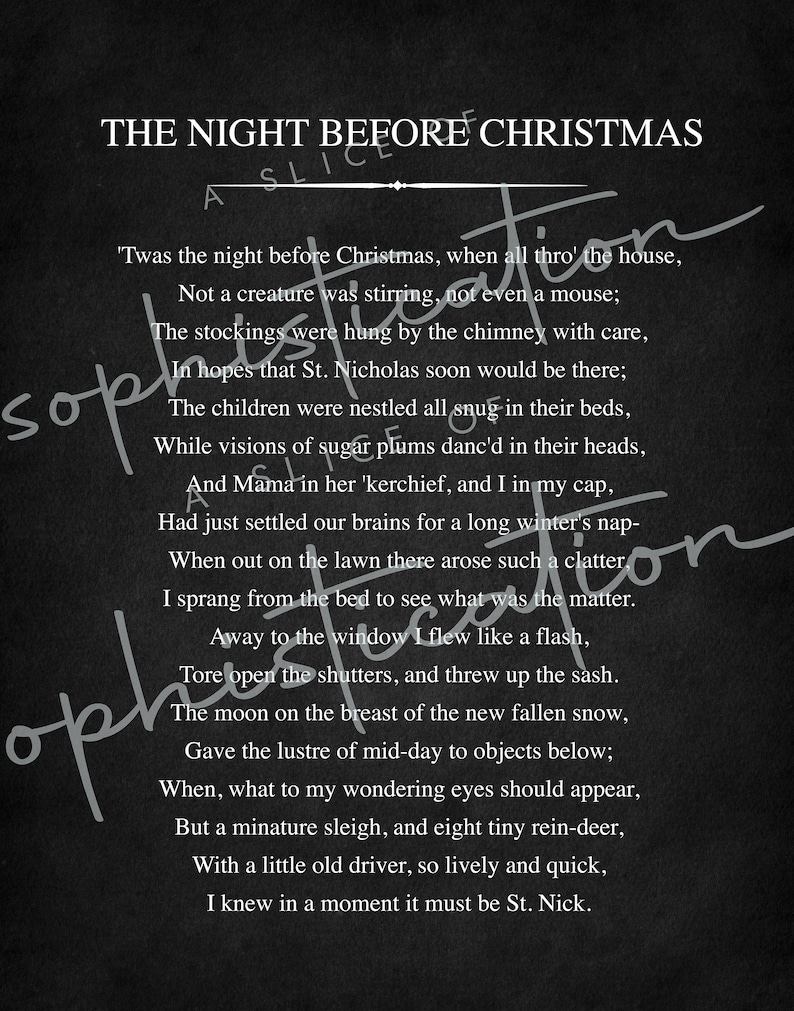 THE NIGHT BEFORE CHRISTMAS
A SLICE OF
sophistication
'Twas the night before Christmas, when all thro' the house,
Not a creature was stirring, not even a mouse;
The stockings were hung by the chimney with care,
In hopes that St. Nicholas soon would be there;
The children were nestled all snug in their beds,
While visions of sugar plums danc'd in their heads,
And Mama in her 'kerchief, and I in my cap,
Had just settled our brains for a long winter's nap-
When out on the lawn there arose such a clatter,
I sprang from the bed to see what was the matter.
Away to the window I flew like a flash,
Tore open the shutters, and threw up the sash.
The moon on the breast of the new fallen snow,
Gave the lustre of mid-day to objects below;
When, what to my wondering eyes should appear,
But a minature sleigh, and eight tiny rein-deer,
With a little old driver, so lively and quick,
I knew in a moment it must be St. Nick.
A SLICE OF
ophistication